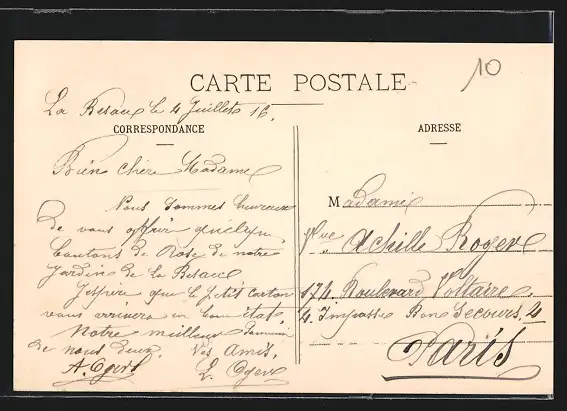 CARTE POSTALE
10
La Besace le 4 Juillet 16.
CORRESPONDANCE
Bien chère Madame
Nous sommes heureux
de vous offrir quelques
boutons de Rose de notre
Jardin de la Besace
J'espère que le petit carton
vous arrivera en bon état.
Notre meilleur souvenir
de nous deux. Vos Amis.
ADRESSE
Madame
Vve Achille Royer
174. Boulevard Voltaire.
4. Impasse Bon Secours. 4
Paris